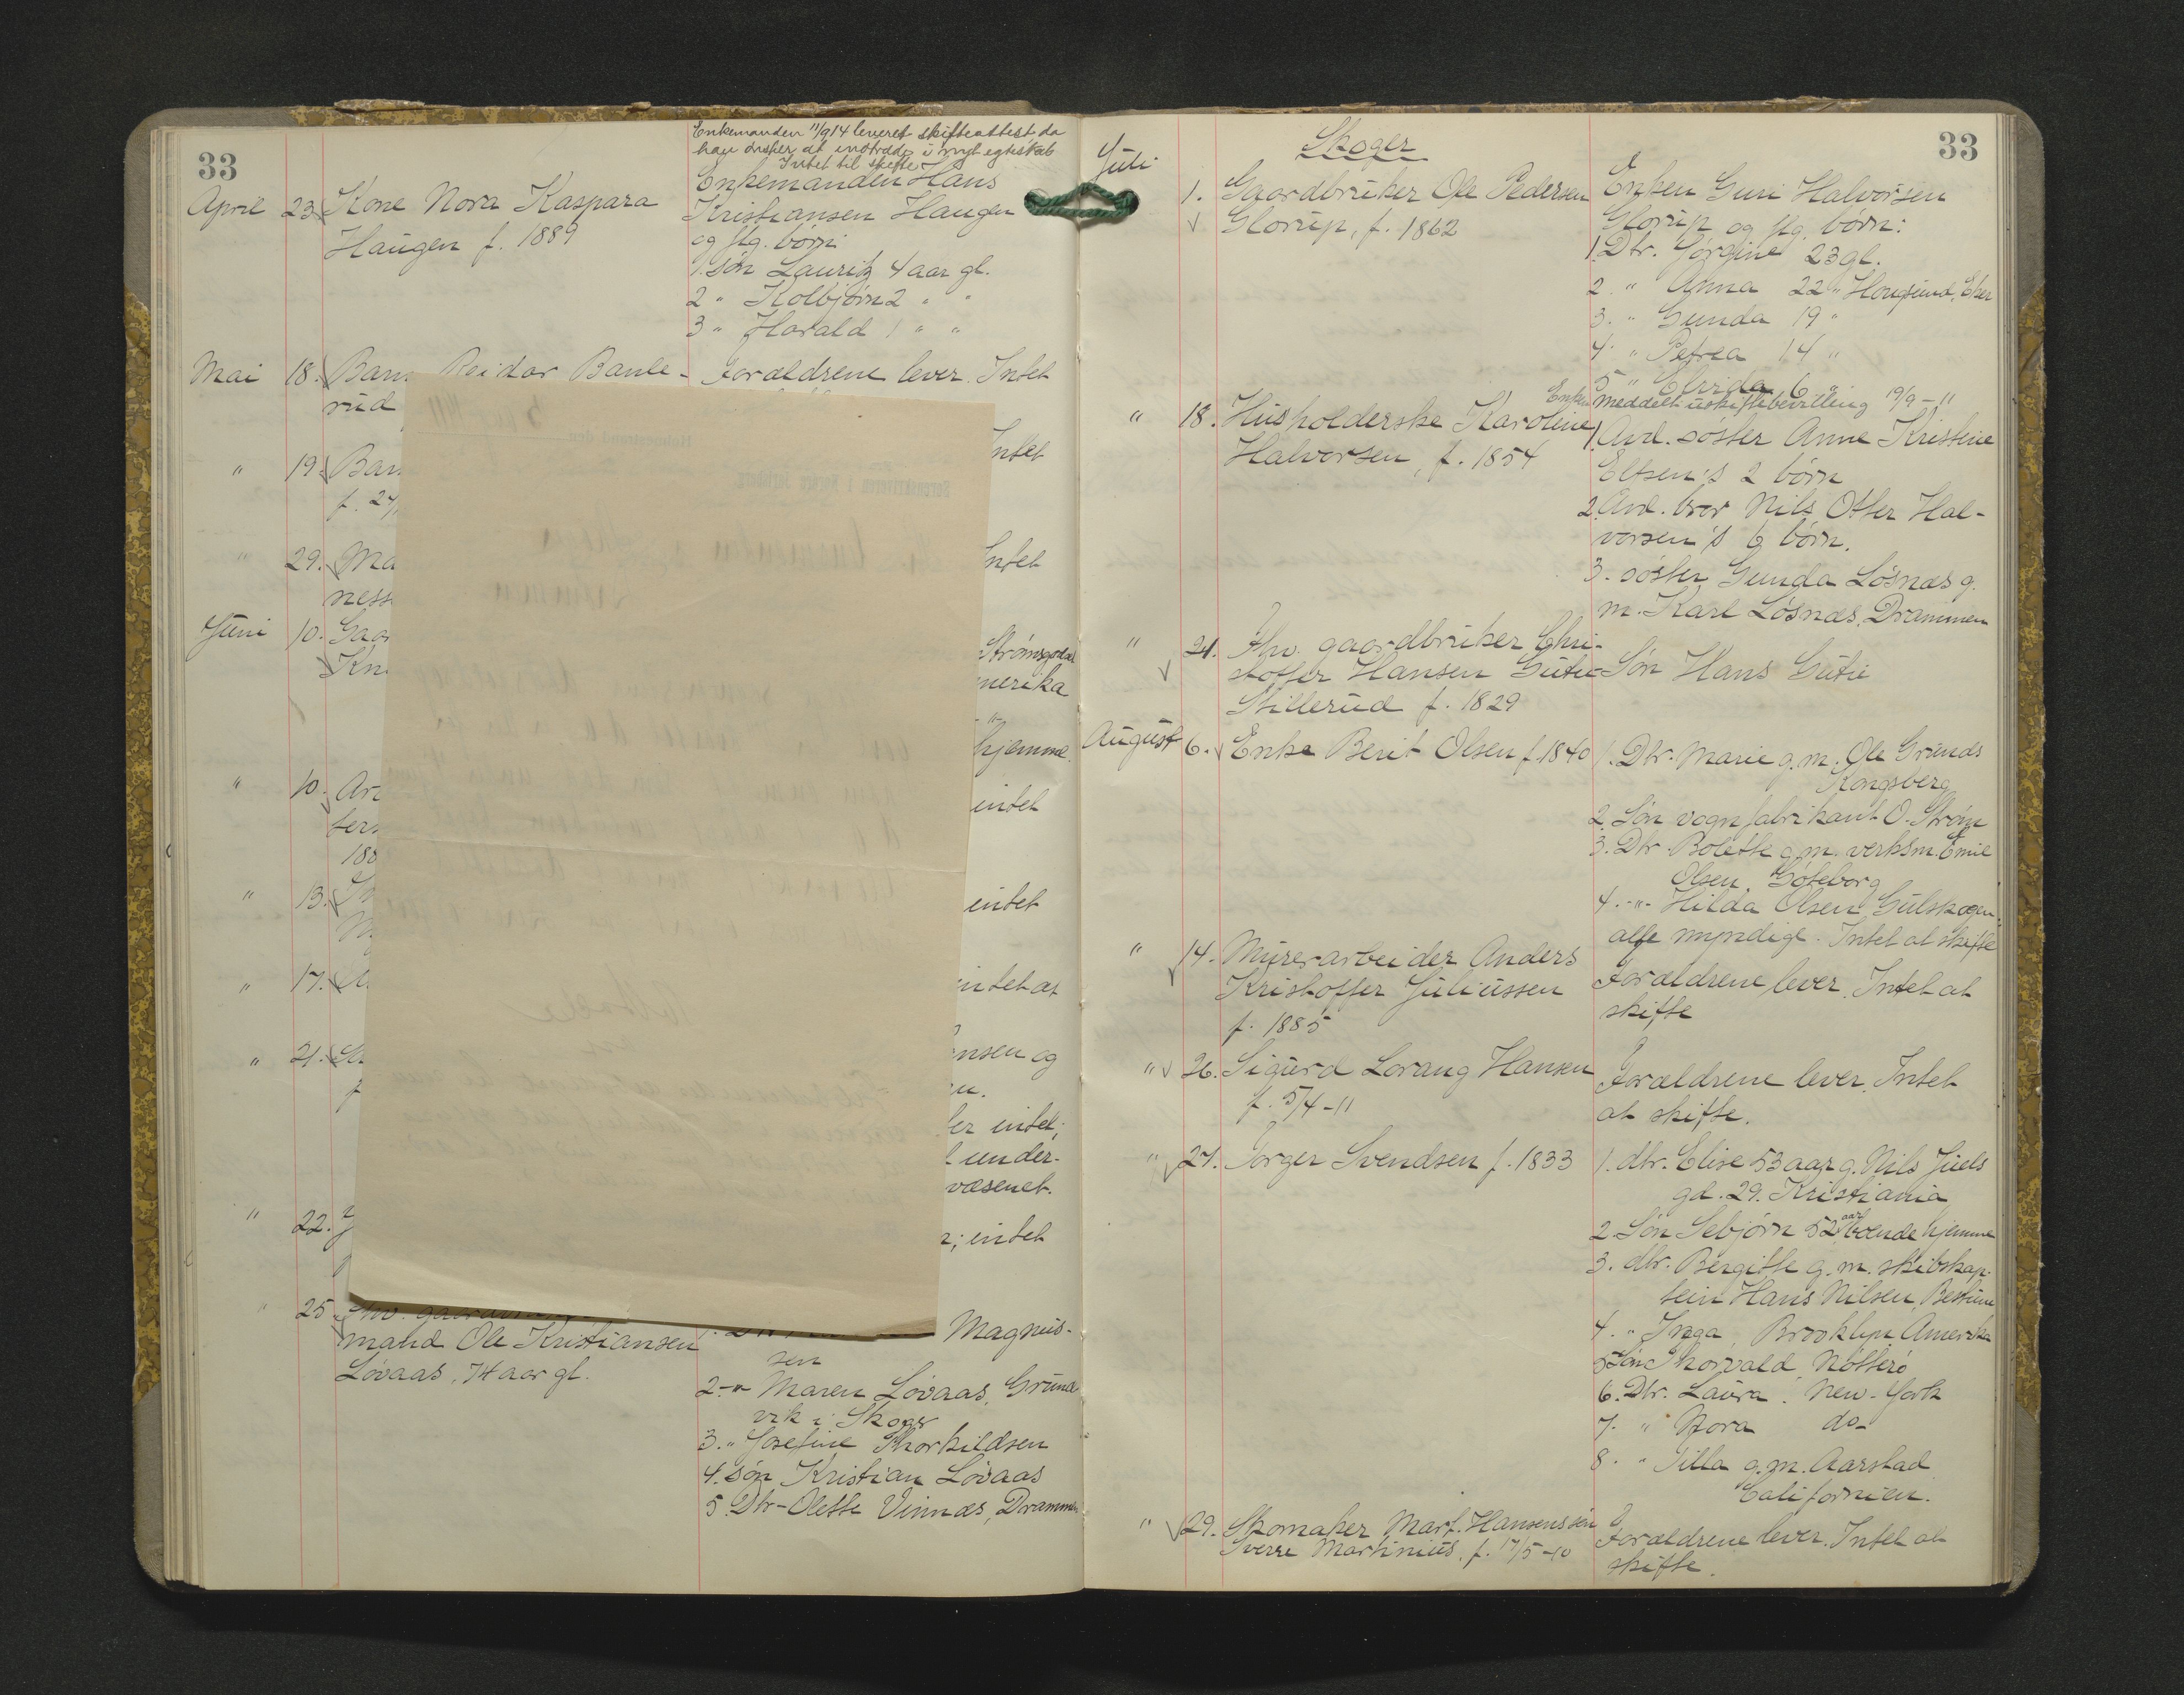 33
Enkemanden 11/9 14 leveret skifteattest da
han ønsker at indtræde i nyt egteskab
Intet til skifte
April 23. Kone Nora Kaspara
Haugen f. 1889
Enkemanden Hans
Kristiansen Haugen
og flg. børn:
1. Søn Lauritz 4 aar gl.
2 " Kolbjørn 2 " "
3 " Harald 1 " "
Mai 18. Barn Reidar Banle-
rud
Forældrene lever. Intet
" 19. Bar
f. 24/
Intet
" 29. Ma
ness
Intet
Juni 10. Gaar
Kn
Strømsgodset
merika
- " -
hjemme.
" 10. Ar
ters
188
intet
" 13.
intet
" 17.
intet at
" 21.
ansen og
en.
ler intet;
l under-
væsenet.
" 22.
n; intet
" 25. Fhv. gaard
mand Ole Kristiansen
Løvaas, 74 aar gl.
Magnus-
sen
2 -"- Maren Løvaas, Grunde
vik i Skoger
3. " Josefine Thorkildsen
4. Søn Kristian Løvaas
5. Dtr - Olette Vinnæs, Drammen
33
Skoger
Juli
1. Gaardbruker Ole Pedersen
Glorup, f. 1862
Enken Guri Halvorsen
Glorup og flg. børn:
1. Dtr. Jørgine 23 gl.
2. " Anna 22 " Hougsund, Eker
3. " Gunda 19 "
4. " Petrea 14 "
5 " Elvida 6 "
Enken meddelt uskiftebevilling 19/9 - 11
" 18. Husholderske Karoline
Halvorsen, f. 1854
1. Avd. søster Anne Kristine
Ellsen's 2 børn
2. Avd. bror Nils Otter Hal-
vorsen's 6 børn.
3. søster Gunda Løsnæs g.
m. Karl Løsnæs, Drammen
" 21. Fhv. gaardbruker Chri-
stoffer Hansen Gutu-
Stillerud f. 1829
Søn Hans Gutu
August 6. Enke Berit Olsen f 1840
1. Dtr. Marie g. m. Ole Grunds
Kongsberg
2. Søn vognfabrikant O. Strøm
3. Dtr. Bolette g. m. verksm. Emil
Olsen, Gøteborg
4. -"- Hilda Olsen Gulskogen,
alle myndige. Intet at skifte
" 14. Murerarbeider Anders
Kristoffer Juliussen
f. 1885
Forældrene lever. Intet at
skifte
" 26. Sigurd Lorang Hansen
f. 5/4 - 11
Forældrene lever. Intet
at skifte.
" 27. Jørgen Svendsen f. 1833
1. dtr. Elise 53 aar g. Nils Juels
gd. 29. Kristiania
2. Søn Sebjørn 52 aar boende hjemme
3. dtr. Bergitte g. m. skibskap-
tein Hans Nilsen, Bestum
4. " Inga, Brooklyn Amerika
5 Søn Thorvald, Nøtterø
6. Dtr. Laura. New-York
7. " Nora do
8. " Tilla g. m. Aarstad
Californien.
" 29. Skomaker Mart. Hansens søn
Sverre Martinius, f. 17/5 - 10
Forældrene lever. Intet at
skifte.